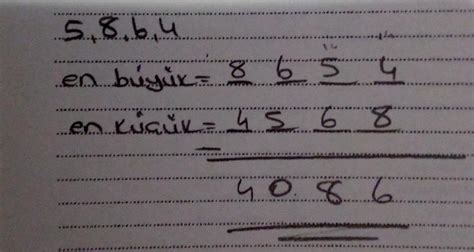 5,8,6,4
14 14
en büyük = 8 6 5 4
en küçük = 4 5 6 8
-
4086